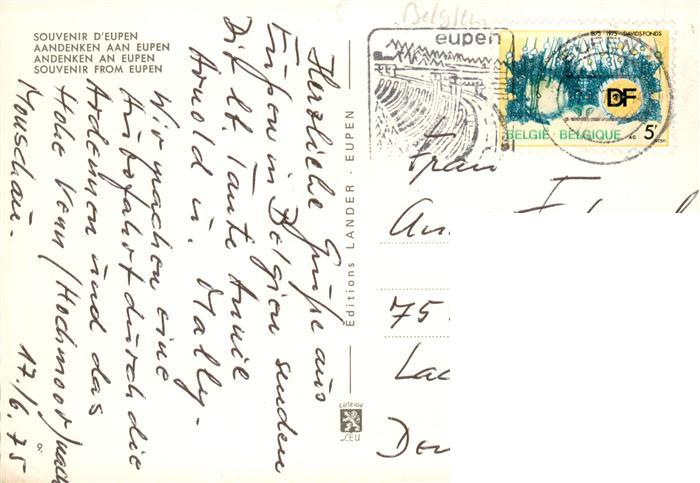 SOUVENIR D'EUPEN
AANDENKEN AAN EUPEN
ANDENKEN AN EUPEN
SOUVENIR FROM EUPEN
Herzliche Grüße aus
Eupen in Belgien senden
Dir lb. Tante Annie
Arnold u. Mally.
Wir machen eine
Autofahrt durch die
Ardennen und das
Hohe Venn (Hochmoor) nach
Monschau.
17./6.75
Editions LANDER - EUPEN
cartexim
CEU
Belgien
eupen
1875 1975 DAVIDSFONDS
EUPEN
DF
BELGIË-BELGIQUE 5F
1975
Frau
75
Den